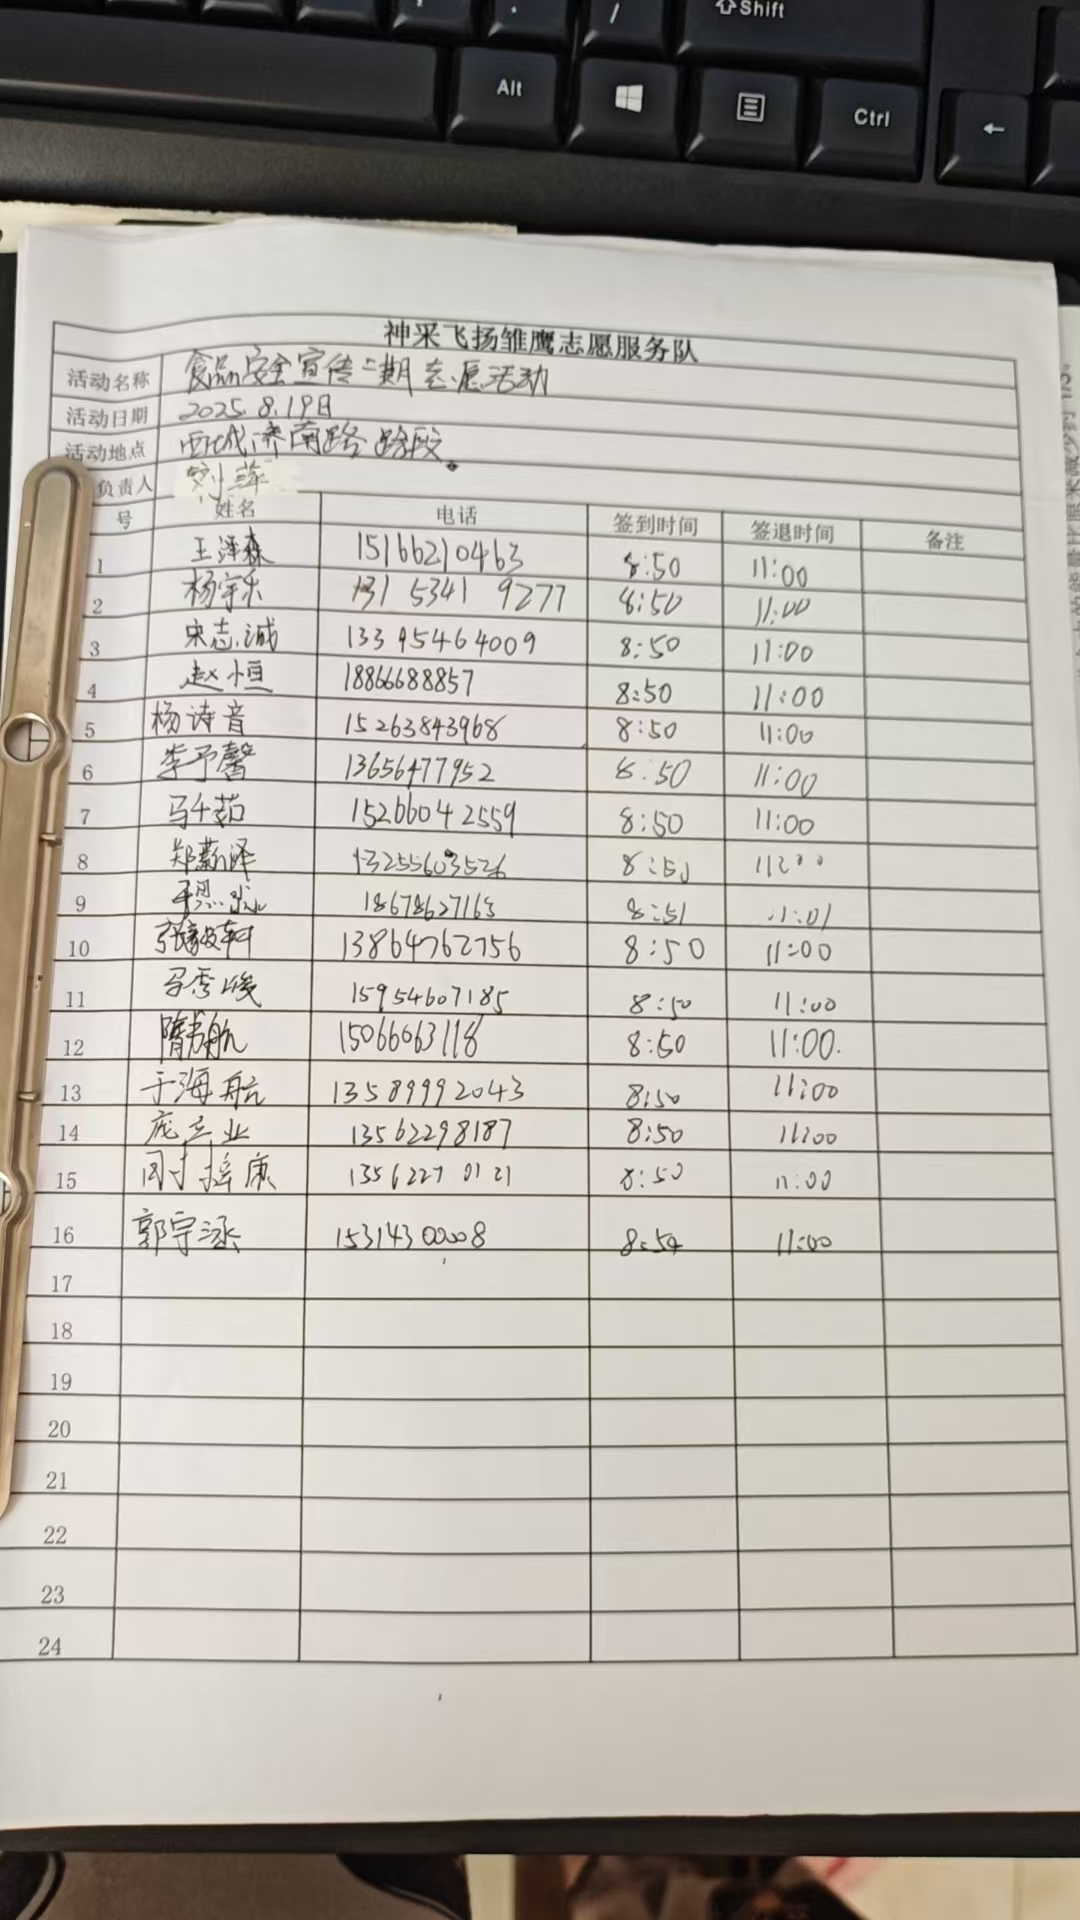 ⇧Shift
Alt
Ctrl
←
神采飞扬雏鹰志愿服务队
活动名称 食品安全宣传二期志愿活动
活动日期 2025.8.19日
活动地点 西城济南路路段。
负责人 刘萍
号 姓名 电话 签到时间 签退时间 备注
1 王泽森 15166210463 8:50 11:00
2 杨宇乐 131 5341 9277 8:50 11:00
3 宋志诚 13395464009 8:50 11:00
4 赵恒 18866688857 8:50 11:00
5 杨诗音 15263843968 8:50 11:00
6 李予馨 13656477952 8:50 11:00
7 马千茹 15266042559 8:50 11:00
8 郑薪泽 13255603526 8:50 11:00
9 18678627163 8:51 11:01
10 张毅轩 13864762756 8:50 11:00
11 马秀峻 15954607185 8:50 11:00
12 隋书航 15066063118 8:50 11:00.
13 于海航 13589992043 8:50 11:00
14 庞立业 13562298187 8:50 11:00
15 周 康 1356227 0121 8:50 11:00
16 郭宇涵 15314300008 8:50 11:00
17
18
19
20
21
22
23
24